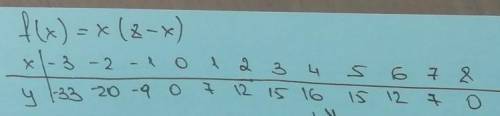 f(x) = x (8 - x)
x | -3 -2 -1 0 1 2 3 4 5 6 7 8
y | -33 -20 -9 0 7 12 15 16 15 12 7 0